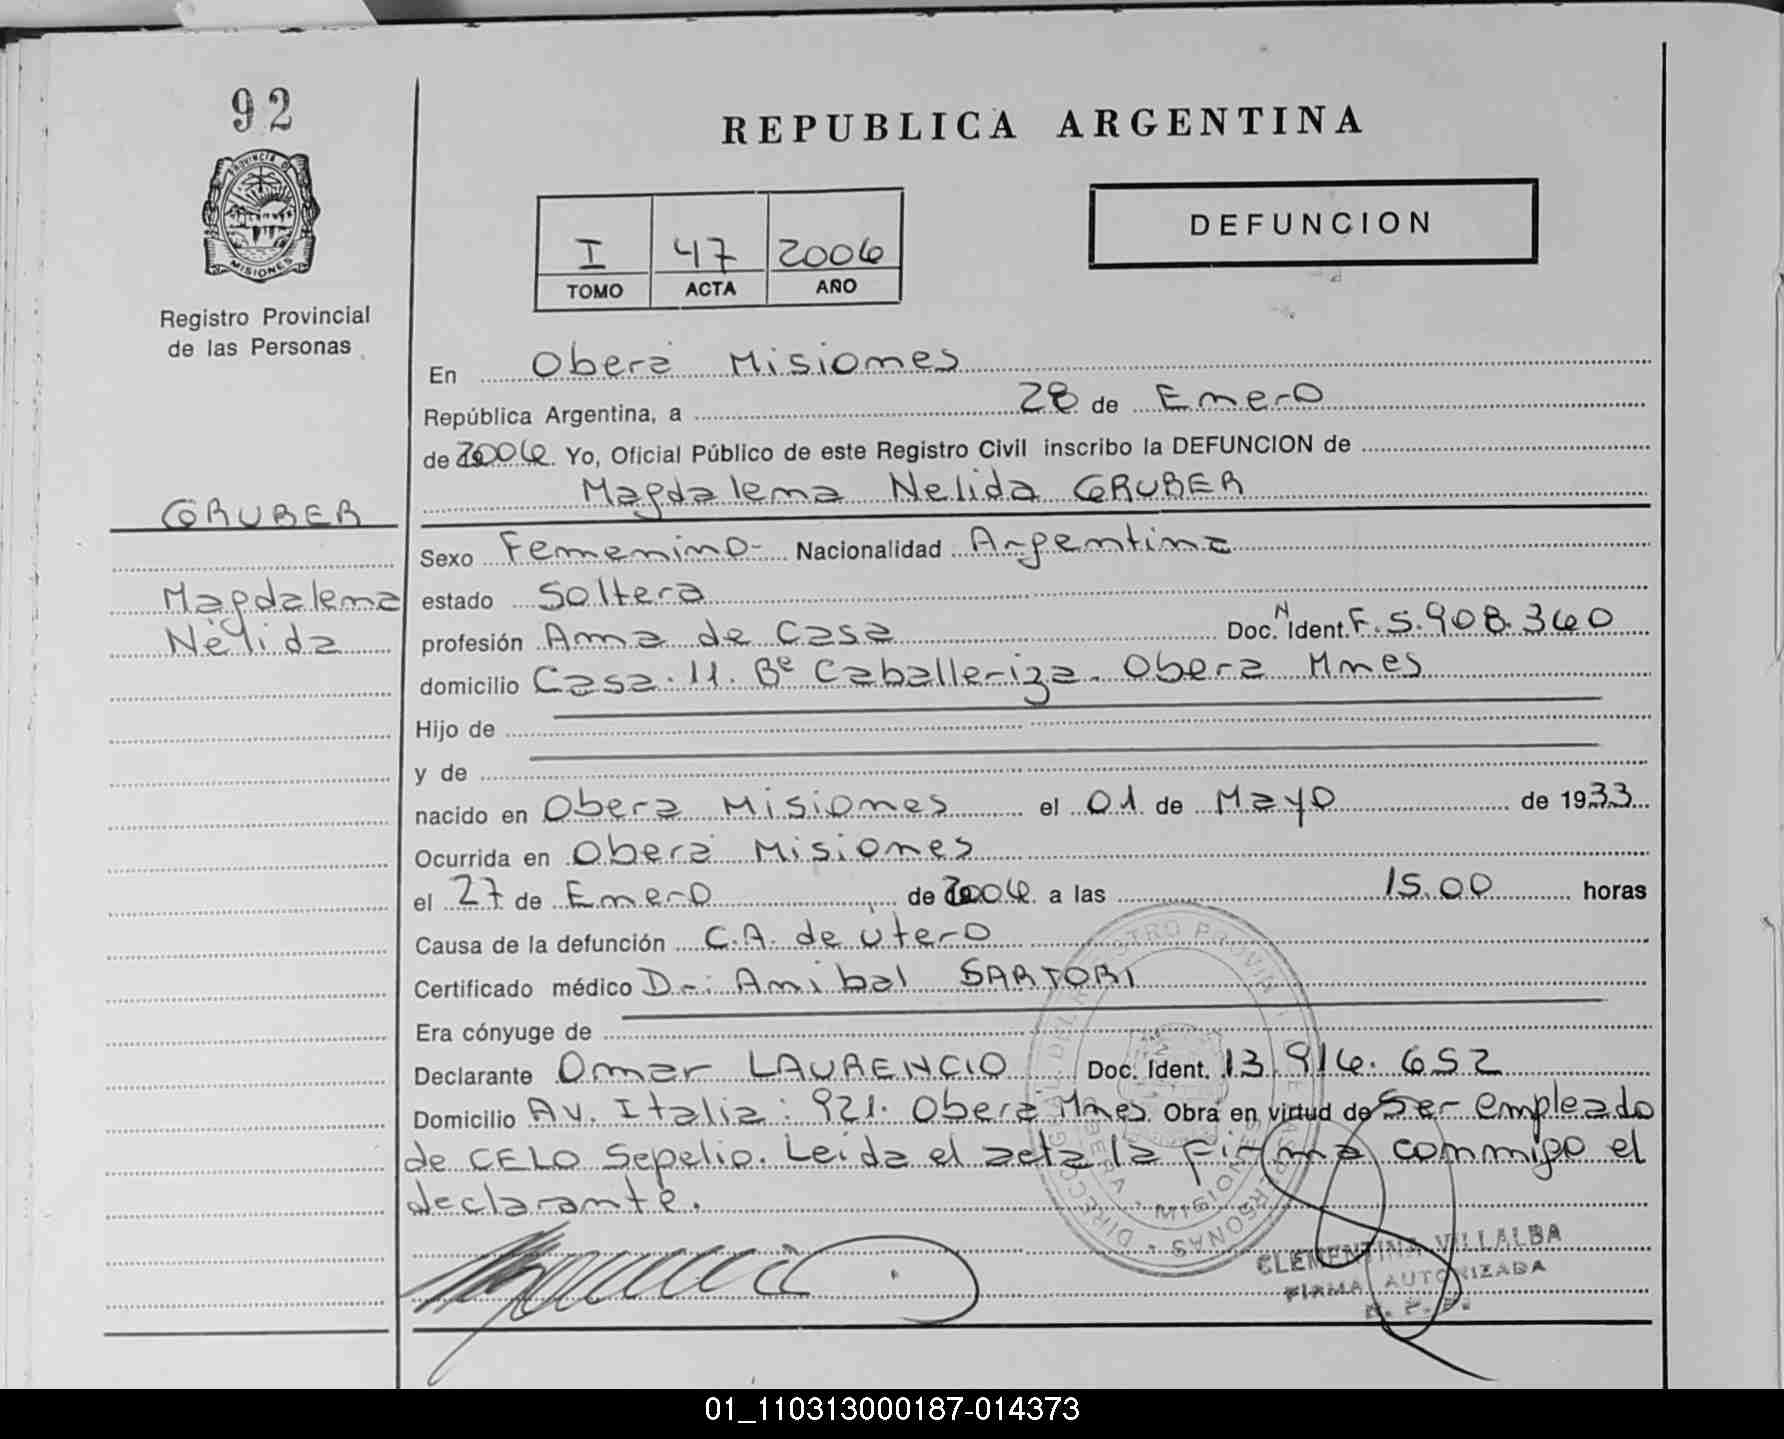 92
REPUBLICA ARGENTINA
PROVINCIA DE
MISIONES
I 47 2006
TOMO ACTA AÑO
DEFUNCION
Registro Provincial
de las Personas
En Oberá Misiones
República Argentina, a 28 de Enero
de 2006. Yo, Oficial Público de este Registro Civil inscribo la DEFUNCION de
Magdalena Nelida GRUBER
GRUBER
Magdalena
Nélida
Sexo Femenino- Nacionalidad Argentina
estado Soltera
profesión Ama de Casa Doc. N Ident. F. 5.908.360
domicilio Casa. 11. Bº Caballeriza. Obera Mnes
Hijo de
y de
nacido en Obera Misiones el 01 de Mayo de 1933
Ocurrida en Oberá Misiones
el 27 de Enero de 2006 a las 15.00 horas
Causa de la defunción C.A. de útero
Certificado médico Dr: Anibal SARTORI
Era cónyuge de
Declarante Omar LAURENCIO Doc. Ident. 13.916.652
Domicilio Av. Italia: 921. Oberá Mnes. Obra en virtud de Ser empleado
de CELO Sepelio. Leida el acta la firma conmigo el
declarante.
CLEMENTINA VILLALBA
FIRMA AUTORIZADA
01_110313000187-014373